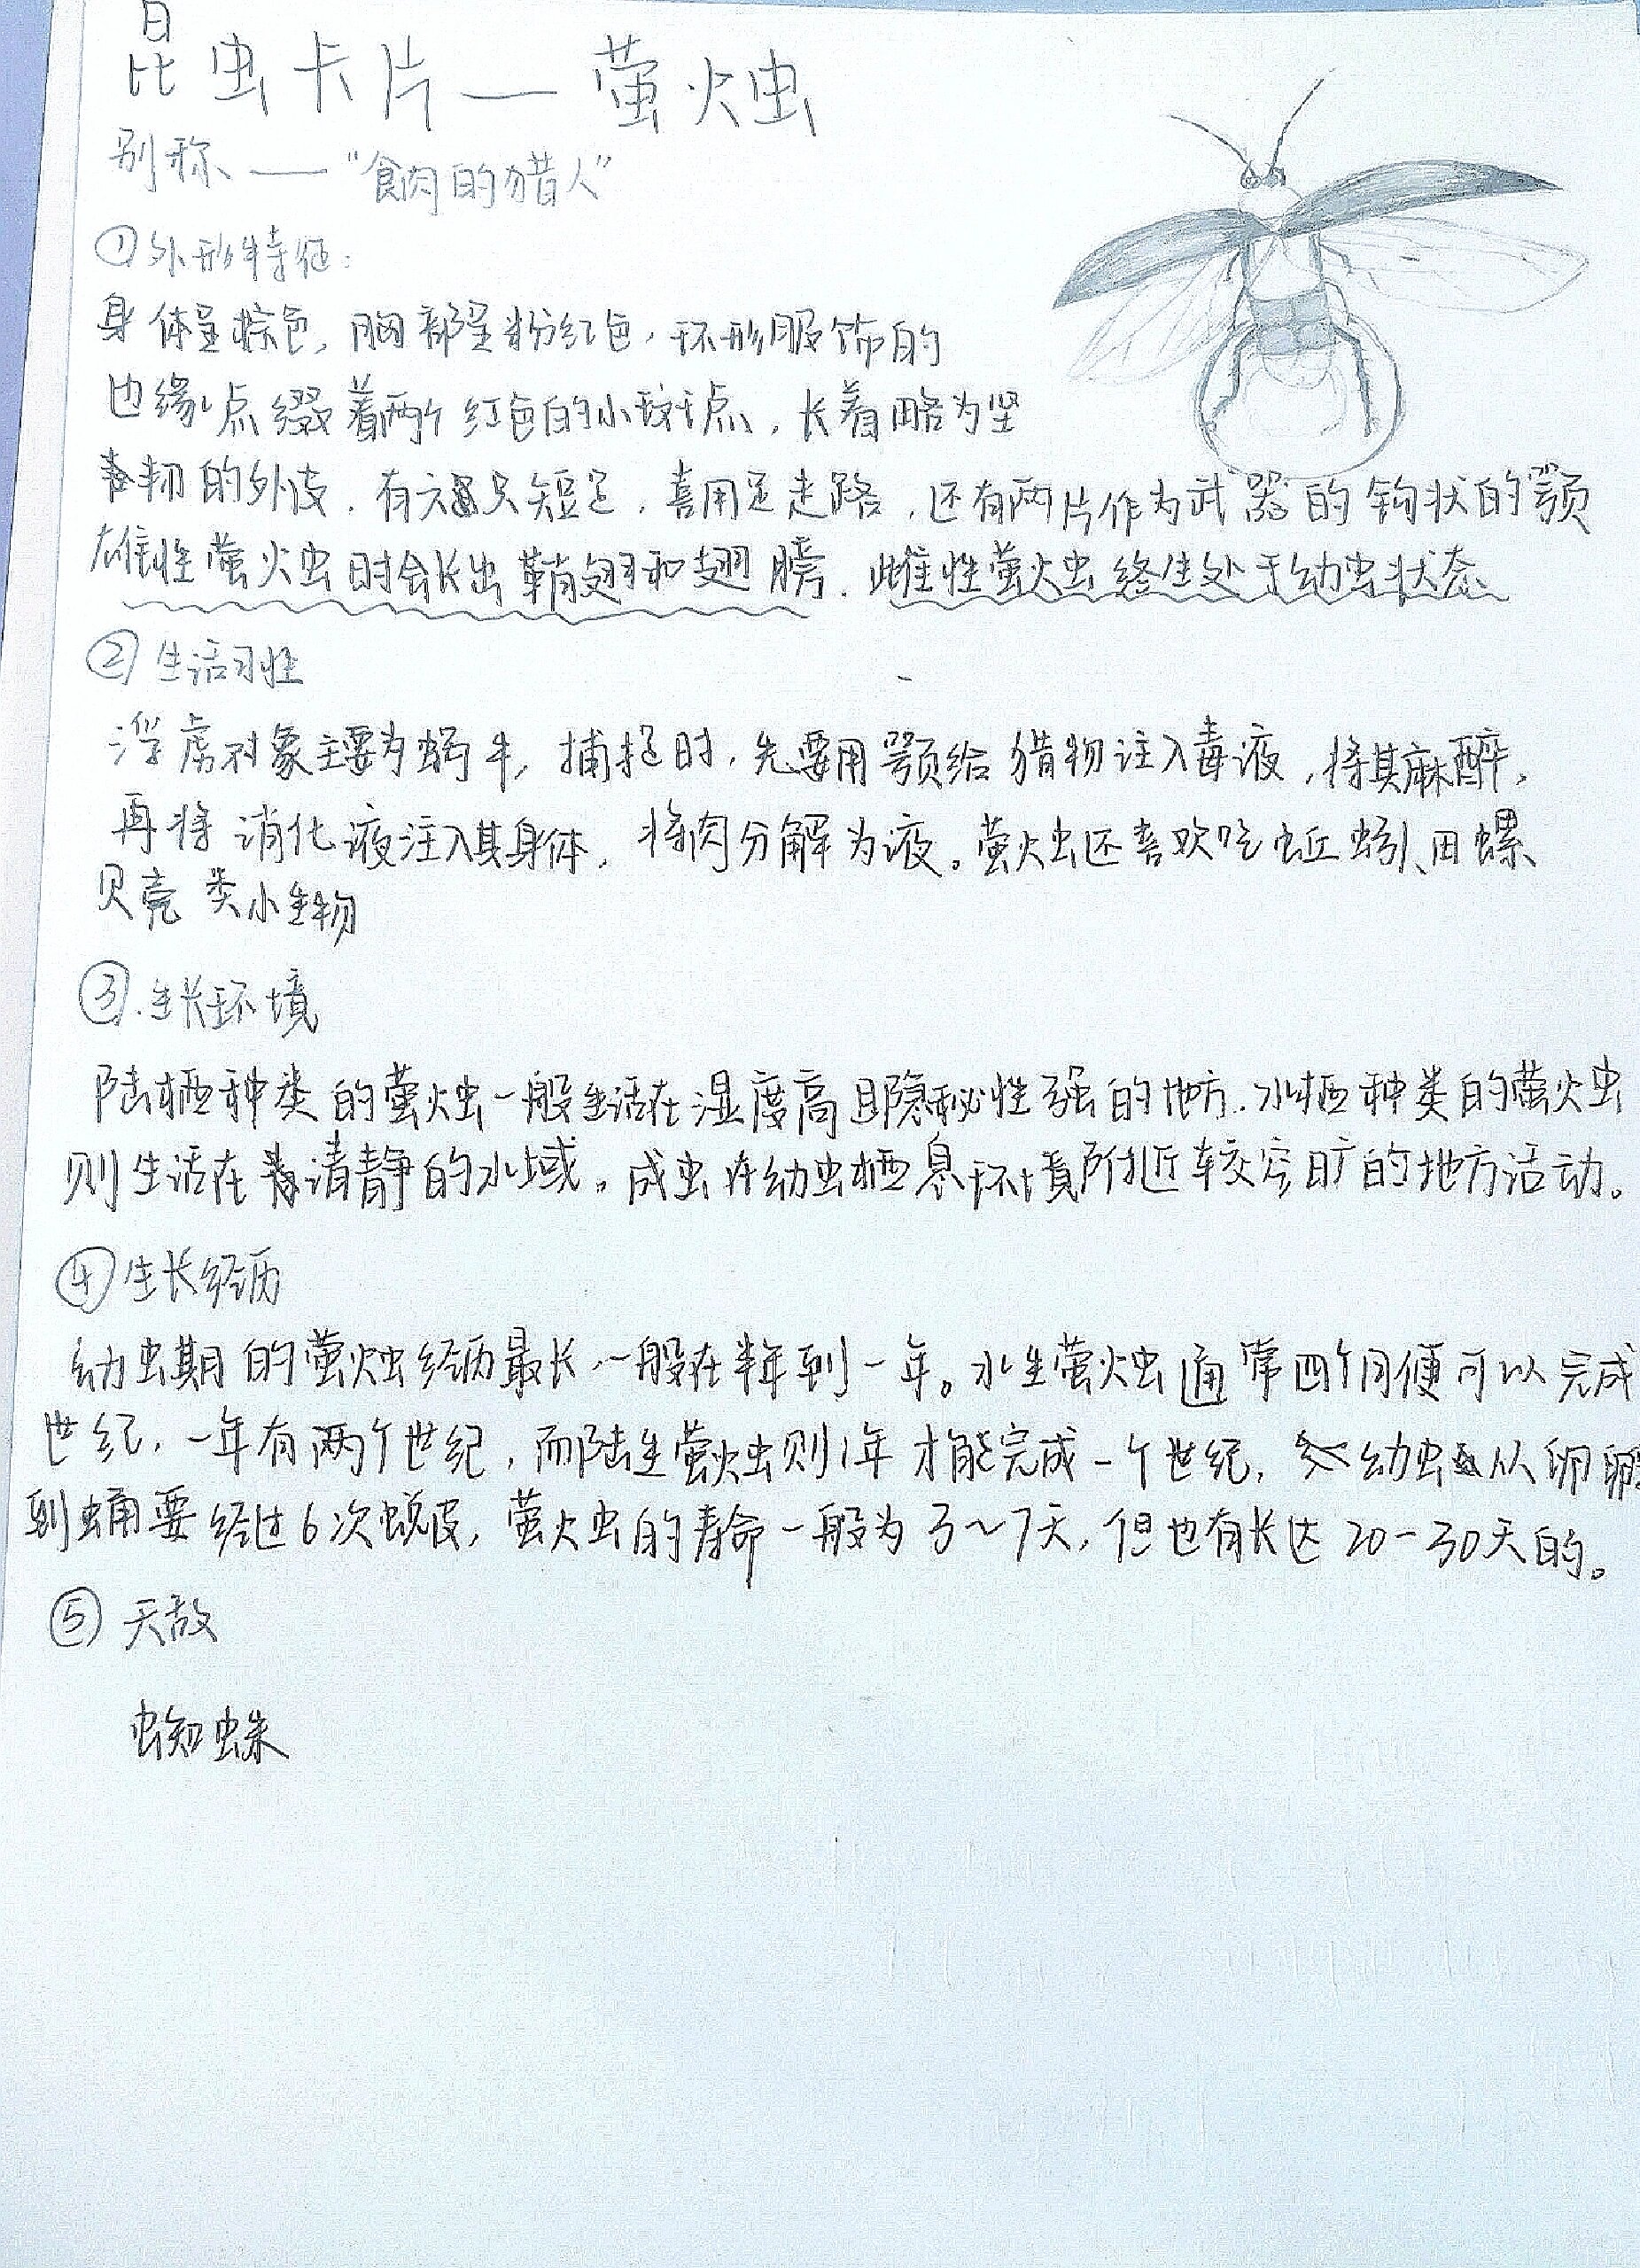 昆虫卡片——萤火虫
别称——“食肉的猎人”
①外形特征：
身体呈棕色，胸部呈粉红色，环形服饰的
边缘点缀着两个红色的小斑点，长着略为坚
韧的外皮，有六只短足，喜用足走路，还有两片作为武器的钩状的颚
雄性萤火虫时会长出鞘翅和翅膀．雌性萤火虫终生处于幼虫状态
②生活习性
俘虏对象主要为蜗牛，捕捉时，先要用颚给猎物注入毒液，将其麻醉，
再将消化液注入其身体，将肉分解为液。萤火虫还喜欢吃蚯蚓、田螺、
贝壳类小生物
③．生长环境
陆栖种类的萤火虫一般生活在湿度高且隐秘性强的地方．水栖种类的萤火虫
则生活在清静的水域。成虫在幼虫栖息环境附近较空旷的地方活动。
④生长经历
幼虫期的萤火虫经历最长，一般在半年到一年。水生萤火虫通常四个月便可以完成
世纪，一年有两个世纪，而陆生萤火虫则1年才能完成一个世纪，幼虫从卵孵
到蛹要经过6次蜕皮，萤火虫的寿命一般为3～7天，但也有长达20－30天的。
⑤天敌
蜘蛛